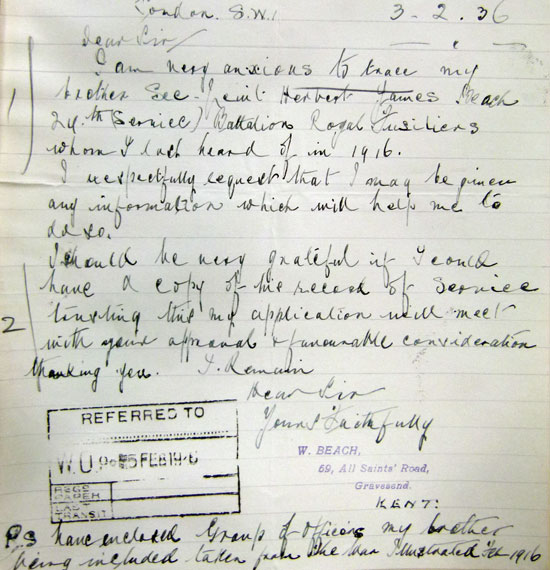 London. S.W.1
3-2.36
Dear Sir
I am very anxious to trace my
brother Sec. Lieut: Herbert James Beach
24th Service) Battalion Royal Fusiliers
whom I last heard of in 1916.
I respectfully request that I may be given
any information which will help me to
do so.
I should be very grateful if I could
have a copy of his record of Service
trusting this my application will meet
with your approval & favourable consideration
thanking you. I Remain
Dear Sir
Yours Faithfully
1
2
REFERRED TO
W.O
5 FEB 19 6
REGD
PAPER
LAST
TRANSIT
W. BEACH,
69, All Saints' Road,
Gravesend.
KENT.
PS have enclosed Group of Officers my brother
being included taken from The War Illustrated Feb 1916